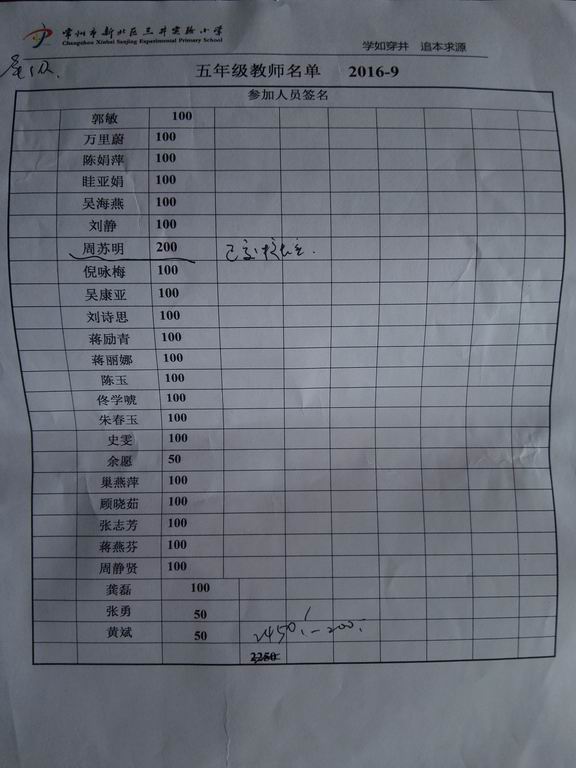 常州市新北区三井实验小学
Changzhou Xinbei Sanjing Experimental Primary School
学如穿井 追本求源
五年级教师名单 2016-9
参加人员签名
郭敏 100
万里蔚 100
陈娟萍 100
眭亚娟 100
吴海燕 100
刘静 100
周苏明 200
倪咏梅 100
吴康亚 100
刘诗思 100
蒋励青 100
蒋丽娜 100
陈玉 100
佟学虓 100
朱春玉 100
史雯 100
余愿 50
巢燕萍 100
顾晓茹 100
张志芳 100
蒋燕芬 100
周静贤 100
龚磊 100
张勇 50
黄斌 50 2450 - 200
2250